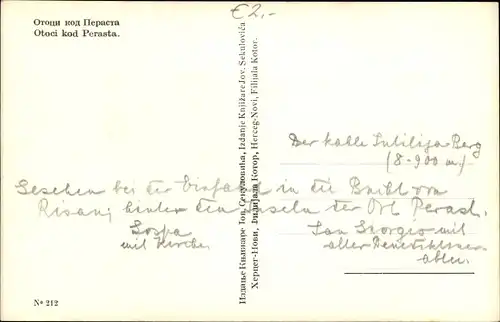 €2,-
Отоци код Пераста
Otoci kod Perasta.
Издање Књижаре Јов. Секуловића, Izdanje Knjižare Jov. Sekulovića
Херцег-Нови, Филијала Котор, Herceg-Novi, Filijala Kotor.
Der kahle Berg
(8-900 m.)
Gesehen bei der Einfahrt in die Bucht von
Risan, hinter den Inseln der Ort Perast.
Gospa
mit Kirche
San Giorgio mit
alter Benediktiner
abtei.
№ 212